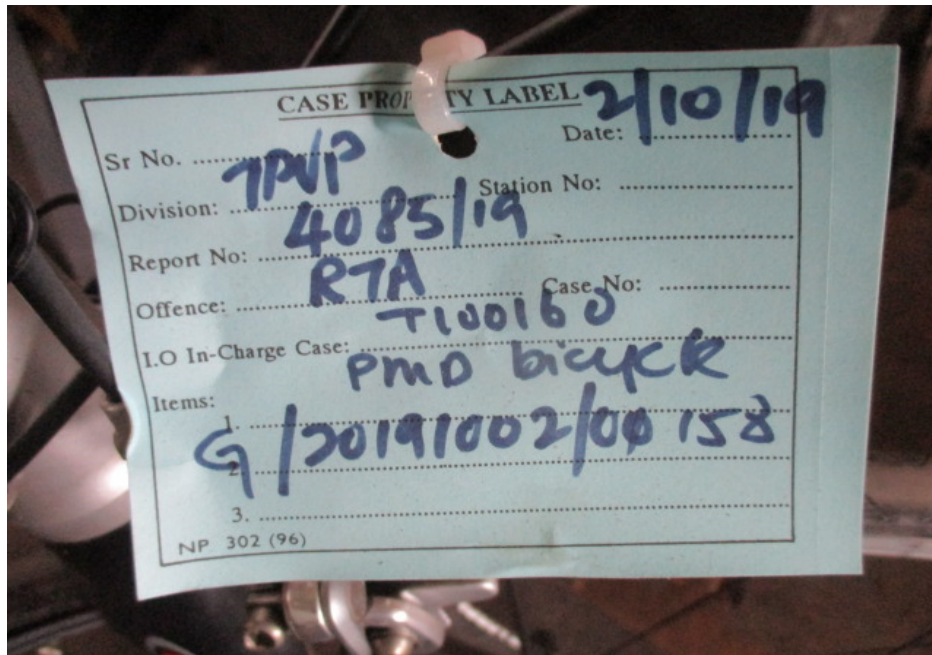 CASE PROPERTY LABEL
Date: 2/10/19
Sr No.
Division: TP/VP Station No:
Report No: 4085/19
Offence: RTA Case No:
I.O In-Charge Case: T100160
Items: PMD bicycle
1. G/20191002/00158
2.
3.
NP 302 (96)